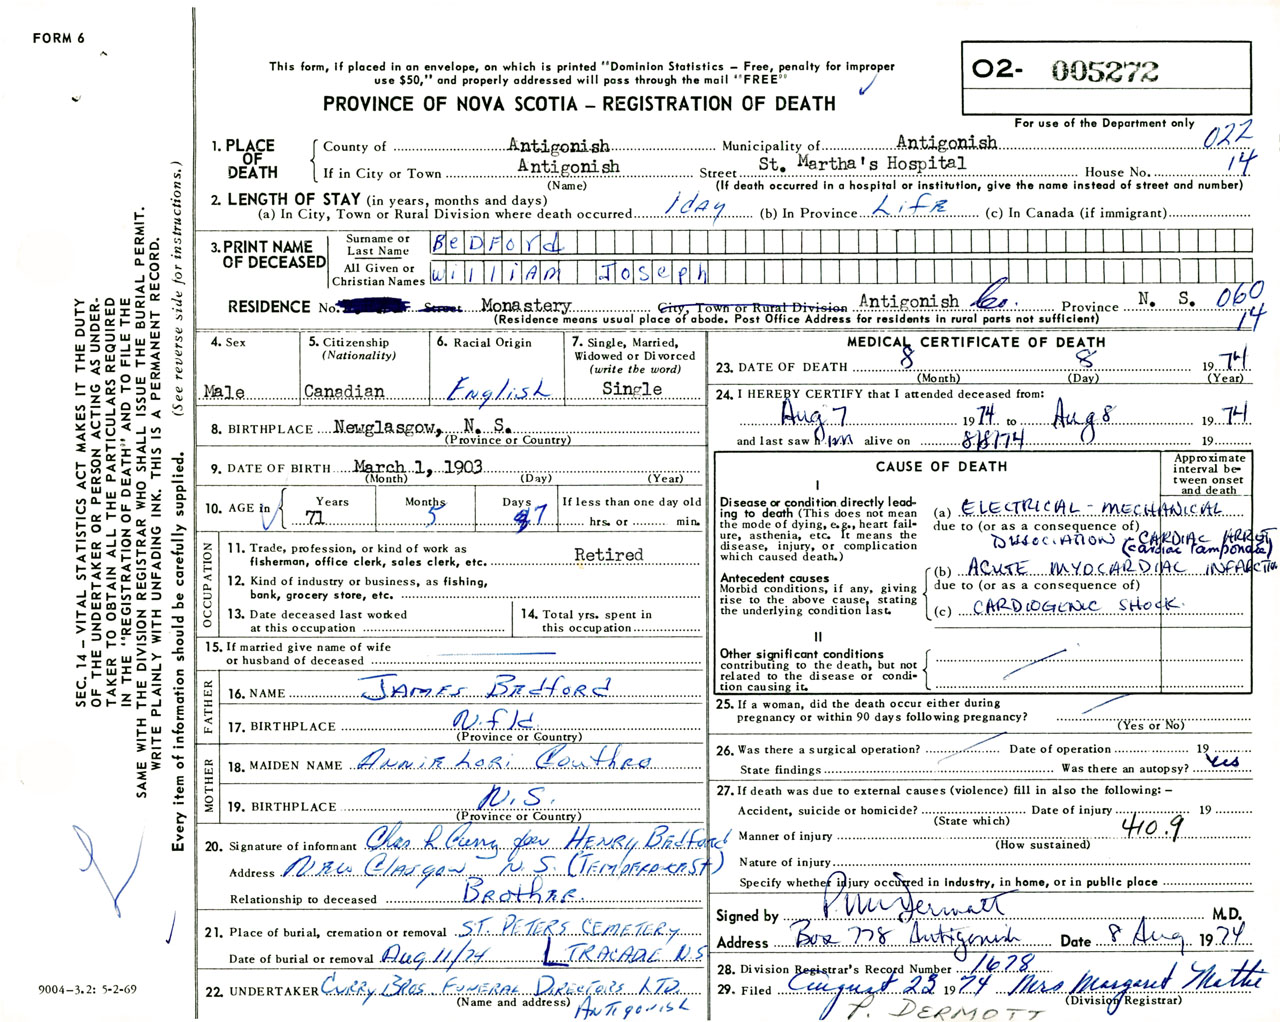 FORM 6
This form, if placed in an envelope, on which is printed "Dominion Statistics – Free, penalty for improper
use $50," and properly addressed will pass through the mail "FREE"
PROVINCE OF NOVA SCOTIA – REGISTRATION OF DEATH
O2- 005272
For use of the Department only
022
14
1. PLACE OF DEATH
County of Antigonish Municipality of Antigonish
If in City or Town Antigonish Street St. Martha's Hospital House No.
(Name) (If death occurred in a hospital or institution, give the name instead of street and number)
2. LENGTH OF STAY (in years, months and days)
(a) In City, Town or Rural Division where death occurred 1 day (b) In Province Life (c) In Canada (if immigrant)
3. PRINT NAME OF DECEASED
Surname or Last Name Bedford
All Given or Christian Names William Joseph
RESIDENCE No. Street Monastery City, Town or Rural Division Antigonish Co. Province N. S. 060
(Residence means usual place of abode. Post Office Address for residents in rural parts not sufficient) 14
4. Sex
Male
5. Citizenship
(Nationality)
Canadian
6. Racial Origin
English
7. Single, Married,
Widowed or Divorced
(write the word)
Single
8. BIRTHPLACE Newglasgow, N. S.
(Province or Country)
9. DATE OF BIRTH March 1, 1903
(Month) (Day) (Year)
10. AGE in Years Months Days If less than one day old
71 5 7 hrs. or min.
OCCUPATION
11. Trade, profession, or kind of work as
fisherman, office clerk, sales clerk, etc. Retired
12. Kind of industry or business, as fishing,
bank, grocery store, etc.
13. Date deceased last worked
at this occupation
14. Total yrs. spent in
this occupation
15. If married give name of wife
or husband of deceased
FATHER
16. NAME James Bedford
17. BIRTHPLACE Nfld
(Province or Country)
MOTHER
18. MAIDEN NAME Annie Lori Couthro
19. BIRTHPLACE N.S.
(Province or Country)
20. Signature of informant Chas R Curry for Henry Bedford
Address New Glasgow N.S.
Relationship to deceased Brother.
21. Place of burial, cremation or removal St. Peters Cemetery
Date of burial or removal Aug 11/74 Tracadie N.S
22. UNDERTAKER Curry Bros. Funeral Directors Ltd.
(Name and address) Antigonish
MEDICAL CERTIFICATE OF DEATH
23. DATE OF DEATH 8 8 1974
(Month) (Day) (Year)
24. I HEREBY CERTIFY that I attended deceased from:
Aug 7 1974 to Aug 8 1974
and last saw him alive on 8/8/74 19
CAUSE OF DEATH
Approximate
interval be-
tween onset
and death
I
Disease or condition directly lead-
ing to death (This does not mean
the mode of dying, e.g., heart fail-
ure, asthenia, etc. It means the
disease, injury, or complication
which caused death.)
(a) ELECTRICAL - MECHANICAL
due to (or as a consequence of)
DISSOCIATION - CARDIAC ARREST
(cardiac tamponade)
Antecedent causes
Morbid conditions, if any, giving
rise to the above cause, stating
the underlying condition last.
(b) ACUTE MYOCARDIAL INFARCTION
due to (or as a consequence of)
(c) CARDIOGENIC SHOCK.
II
Other significant conditions
contributing to the death, but not
related to the disease or condi-
tion causing it.
25. If a woman, did the death occur either during
pregnancy or within 90 days following pregnancy?
(Yes or No)
26. Was there a surgical operation? Date of operation 19
State findings Was there an autopsy? yes
27. If death was due to external causes (violence) fill in also the following: –
Accident, suicide or homicide? Date of injury 19
(State which)
Manner of injury 410.9
(How sustained)
Nature of injury
Specify whether injury occurred in Industry, in home, or in public place
Signed by P. McDermott M.D.
Address Box 778 Antigonish Date 8 Aug. 1974
28. Division Registrar's Record Number 1678
29. Filed August 23 1974 Mrs Margaret
(Division Registrar)
P. DERMOTT
SEC. 14 – VITAL STATISTICS ACT MAKES IT THE DUTY
OF THE UNDERTAKER OR PERSON ACTING AS UNDER-
TAKER TO OBTAIN ALL THE PARTICULARS REQUIRED
IN THE "REGISTRATION OF DEATH" AND TO FILE THE
SAME WITH THE DIVISION REGISTRAR WHO SHALL ISSUE THE BURIAL PERMIT.
WRITE PLAINLY WITH UNFADING INK. THIS IS A PERMANENT RECORD.
Every item of information should be carefully supplied. (See reverse side for instructions.)
9004-3.2: 5-2-69